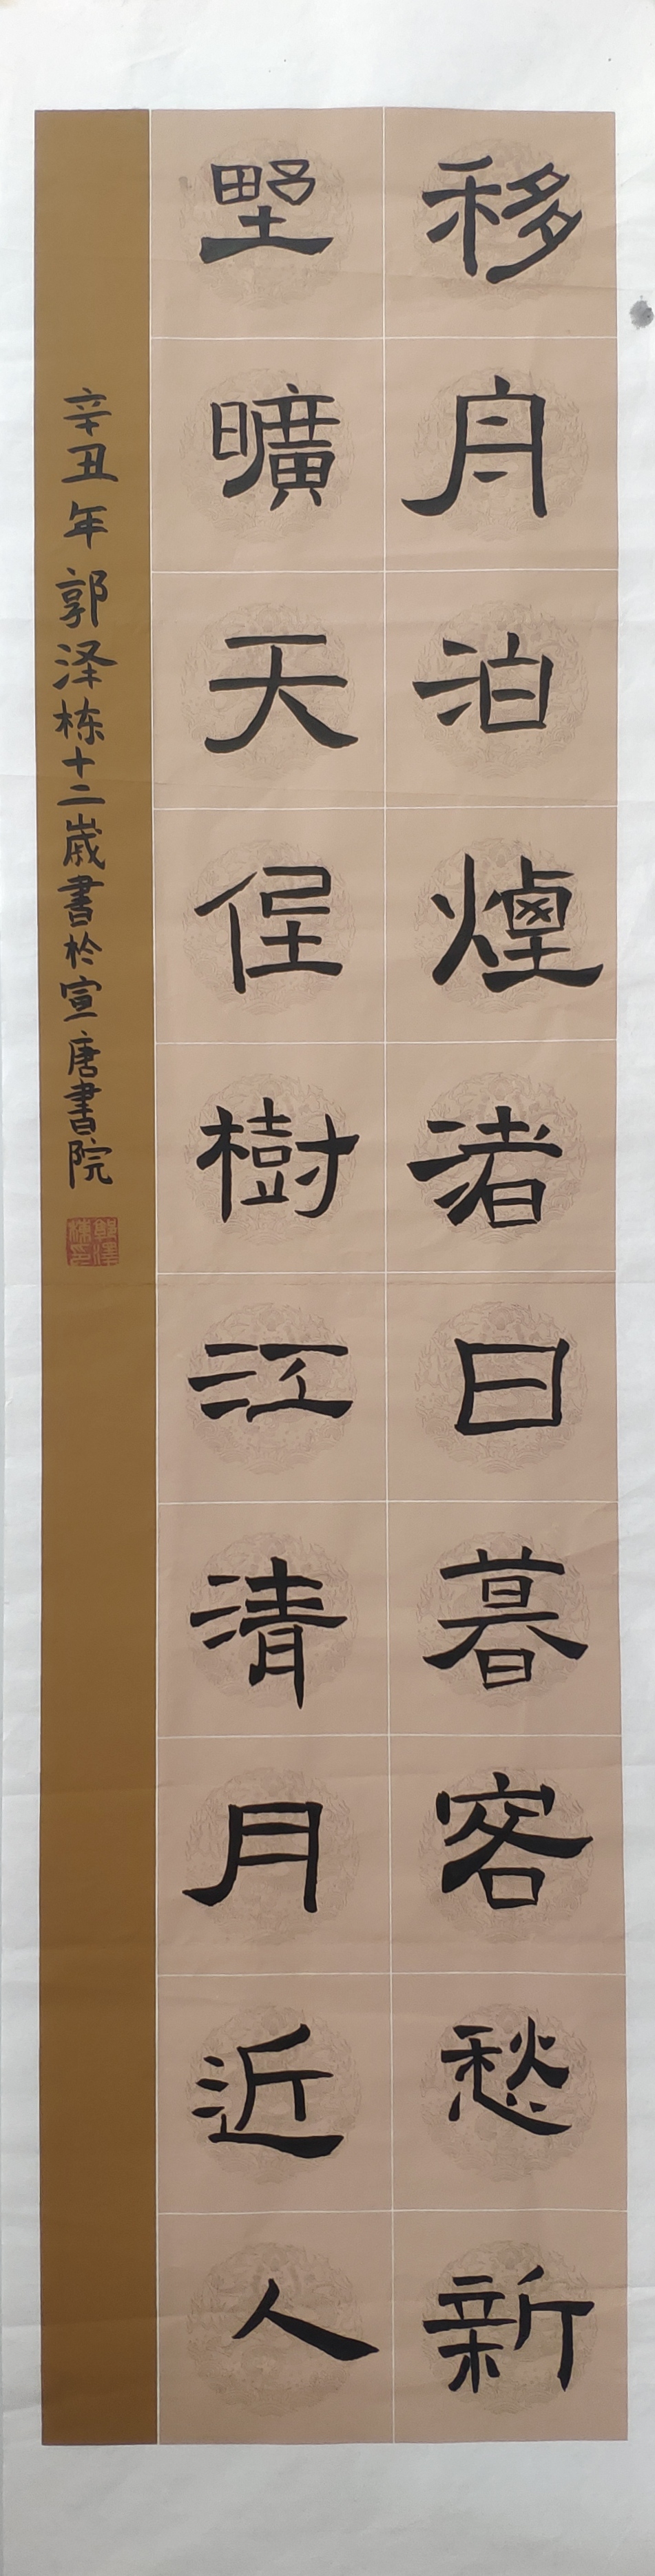 移舟泊煙渚日暮客愁新
野曠天低樹江清月近人
辛丑年郭泽栋十二歲書於宣唐書院
郭澤棟印